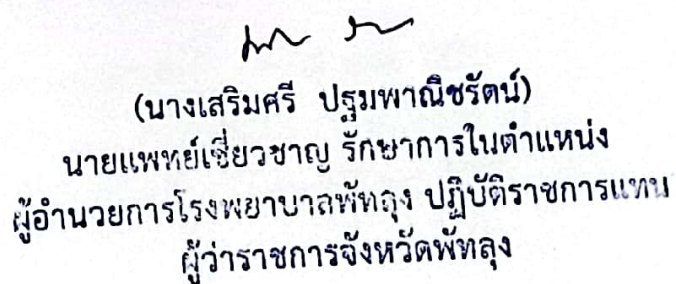 (นางเสริมศรี ปฐมพาณิชรัตน์)
นายแพทย์เชี่ยวชาญ รักษาการในตำแหน่ง
ผู้อำนวยการโรงพยาบาลพัทลุง ปฏิบัติราชการแทน
ผู้ว่าราชการจังหวัดพัทลุง